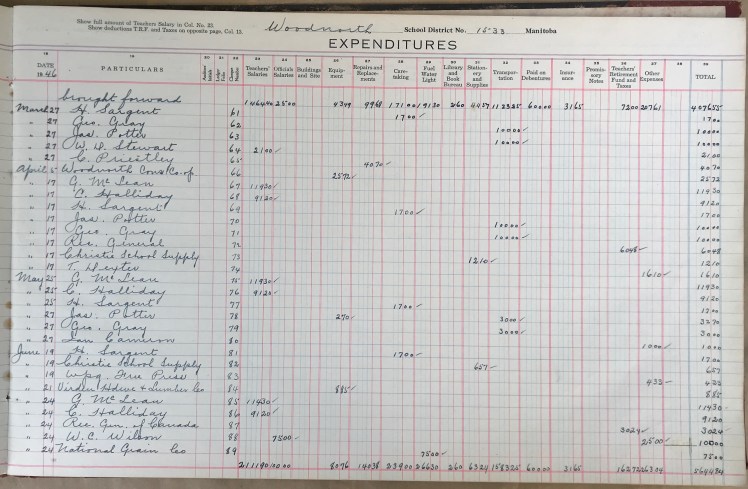 Show full amount of Teachers Salary in Col. No. 23.
Show deductions T.R.F. and Taxes on opposite page, Col. 13.
Woodnorth School District No. 1533 Manitoba
EXPENDITURES
DATE 1946 PARTICULARS Teachers' Salaries Officials Salaries Buildings and Site Equipment Repairs and Replacements Caretaking Fuel Water Light Library and Book Bureau Stationery and Supplies Transportation Paid on Debentures Insurance Promissory Notes Teachers' Retirement Fund and Taxes Other Expenses TOTAL
brought forward 146440 2500 4349 9968 17100 19130 260 4457 112325 60000 3165 7200 20761 407655
March 27 H. Sargent 61 1700 1700
" 27 Geo. Gray 62 10000 10000
" 27 Jas. Potter 63 10000 10000
" 27 W. D. Stewart 64 2100 2100
" 27 C. Priestley 65 4070 4070
April 5 Woodnorth Cons Co-op. 66 2572 2572
" 17 G. McLean 67 11930 11930
" 17 C. Halliday 68 9120 9120
" 17 H. Sargent 69 1700 1700
" 17 Jas. Potter 70 10000 10000
" 17 Geo. Gray 71 10000 10000
" 17 Rec. General 72 6048 6048
" 17 Christie School Supply 73 1210 1210
" 17 T. Dexter 74 1610 1610
May 25 G. McLean 75 11930 11930
" 25 C. Halliday 76 9120 9120
" 25 H. Sargent 77 1700 1700
" 27 Jas. Potter 78 270 3000 3270
" 27 Geo. Gray 79 3000 3000
" 27 Ian Cameron 80 1000 1000
June 19 H. Sargent 81 1700 1700
" 19 Christie School Supply 82 657 657
" 19 Wpg. Free Press 83 433 433
" 21 Virden Hdwe & Lumber Co 84 885 885
" 24 G. McLean 85 11430 11430
" 24 C. Halliday 86 9120 9120
" 24 Rec. Gen. of Canada 87 3024 3024
" 24 W. C. Wilson 88 7500 2500 10000
" 24 National Grain Co 89 7500 7500
211190 10000 8076 14038 23900 26630 260 6324 158325 60000 3165 16272 26304 564484